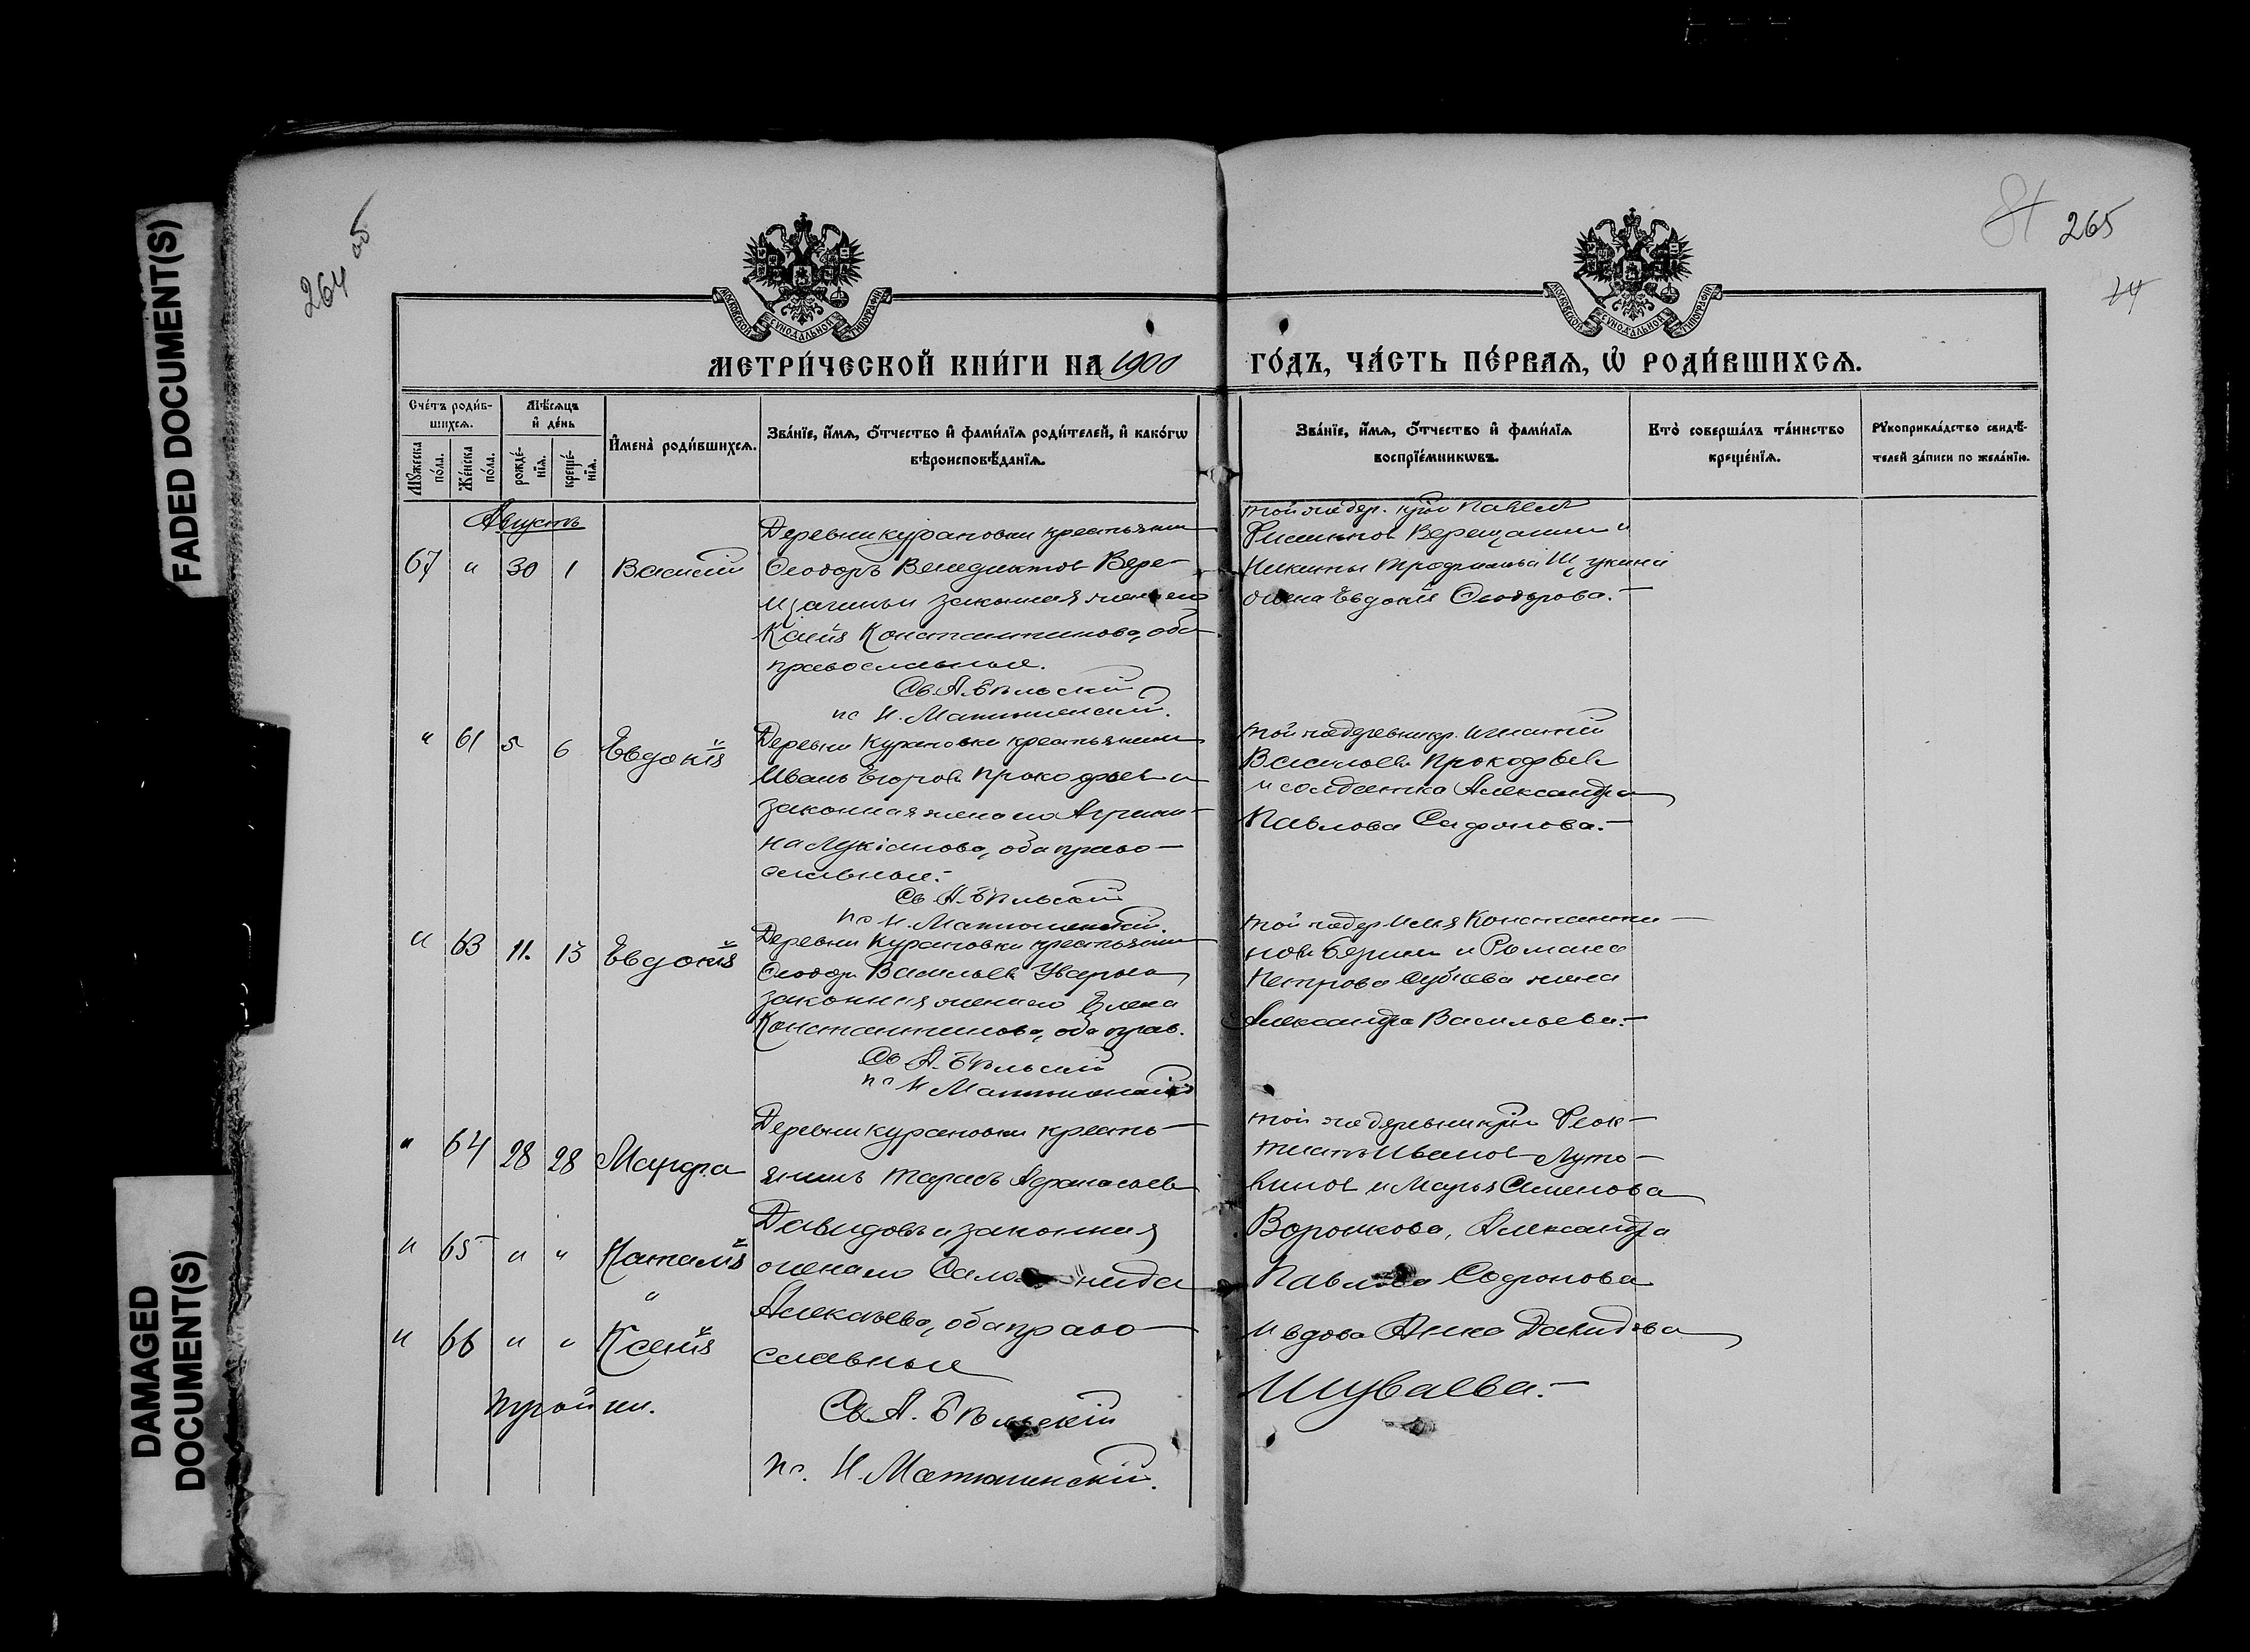 FADED DOCUMENT(S)
DAMAGED
DOCUMENT(S)
264 об
265
МОСКОВСКОЙ СУНОДАЛЬНОЙ ТИПОГРАФІИ
МОСКОВСКОЙ СУНОДАЛЬНОЙ ТИПОГРАФІИ
МЕТРИ́ЧЕСКОЙ КНИ́ГИ НА 1900
ГО́ДЪ, ЧА́СТЬ ПЕ́РВАѦ, Ѡ҆ РОДИ́ВШИХСѦ.
Сче́тъ роди́в-
шихсѧ.
Мꙋ́жеска
по́ла.
Же́нска
по́ла.
Мѣ́сѧцъ
и҆ де́нь
рожде́-
нїѧ.
креще́-
нїѧ.
И҆мена̀ роди́вшихсѧ.
Зва́нїе, и҆́мѧ, ѻ҆́тчество и҆ фами́лїѧ роди́телей, и҆ како́гѡ
вѣроисповѣ́данїѧ.
Зва́нїе, и҆́мѧ, ѻ҆́тчество и҆ фами́лїѧ
воспрїе́мникѡвъ.
Кто̀ соверша́лъ та́инство
креще́нїѧ.
Рꙋкоприкла́дство свидѣ́-
телей за́писи по жела́нїю.
Августъ
67 " 30 1 Василій
Деревни Курановки крестьянин
Ѳеодоръ Венедиктов Вере-
щагинъ и законная жена его
Ксенія Константинова, оба
православные.
Св. А. Бѣльскій
пс Н. Матюшенскій.
той же дер. Павелъ
Филиппов Верещагин и
Никиты Трофимова Щукина
жена Евдокія Ѳеодорова.
" 61 5 6 Евдокія
Деревни Курановки крестьянин
Иванъ Егоров Прокофьев и
законная жена его Агрипи-
на Лукіанова, оба право-
славные.
Св. А. Бѣльскій
пс Н. Матюшенскій.
той же деревни кр. Игнатій
Васильев Прокофьев
и солдатка Александра
Павлова Сафонова.
" 63 11. 13 Евдокія
Деревни Курановки крестьянин
Ѳеодор Васильев Уваров и
законная жена его Елена
Константинова, оба прав.
Св А. Бѣльскій
пс Н Матюшенскій
той же дер Илья Константи-
нов и Романа
Петрова жена
Александра Васильева.
" 64 28 28 Марѳа
" 65 " " Наталія
"
" 66 " " Ксенія
тройни.
Деревни Курановки кресть-
янинъ Тарасъ Афанасьев
Давидовъ и законная
жена его нида
Алексѣева, оба право-
славные
Св А. Бѣльскій
пс. Н. Матюшенскій.
той же деревни Ѳеок-
тистъ Иванов Луто-
винов и Марья Семенова
Ворошкова, Александра
Павлова Сафонова
и вдова Анна Давидова
Шуваева.